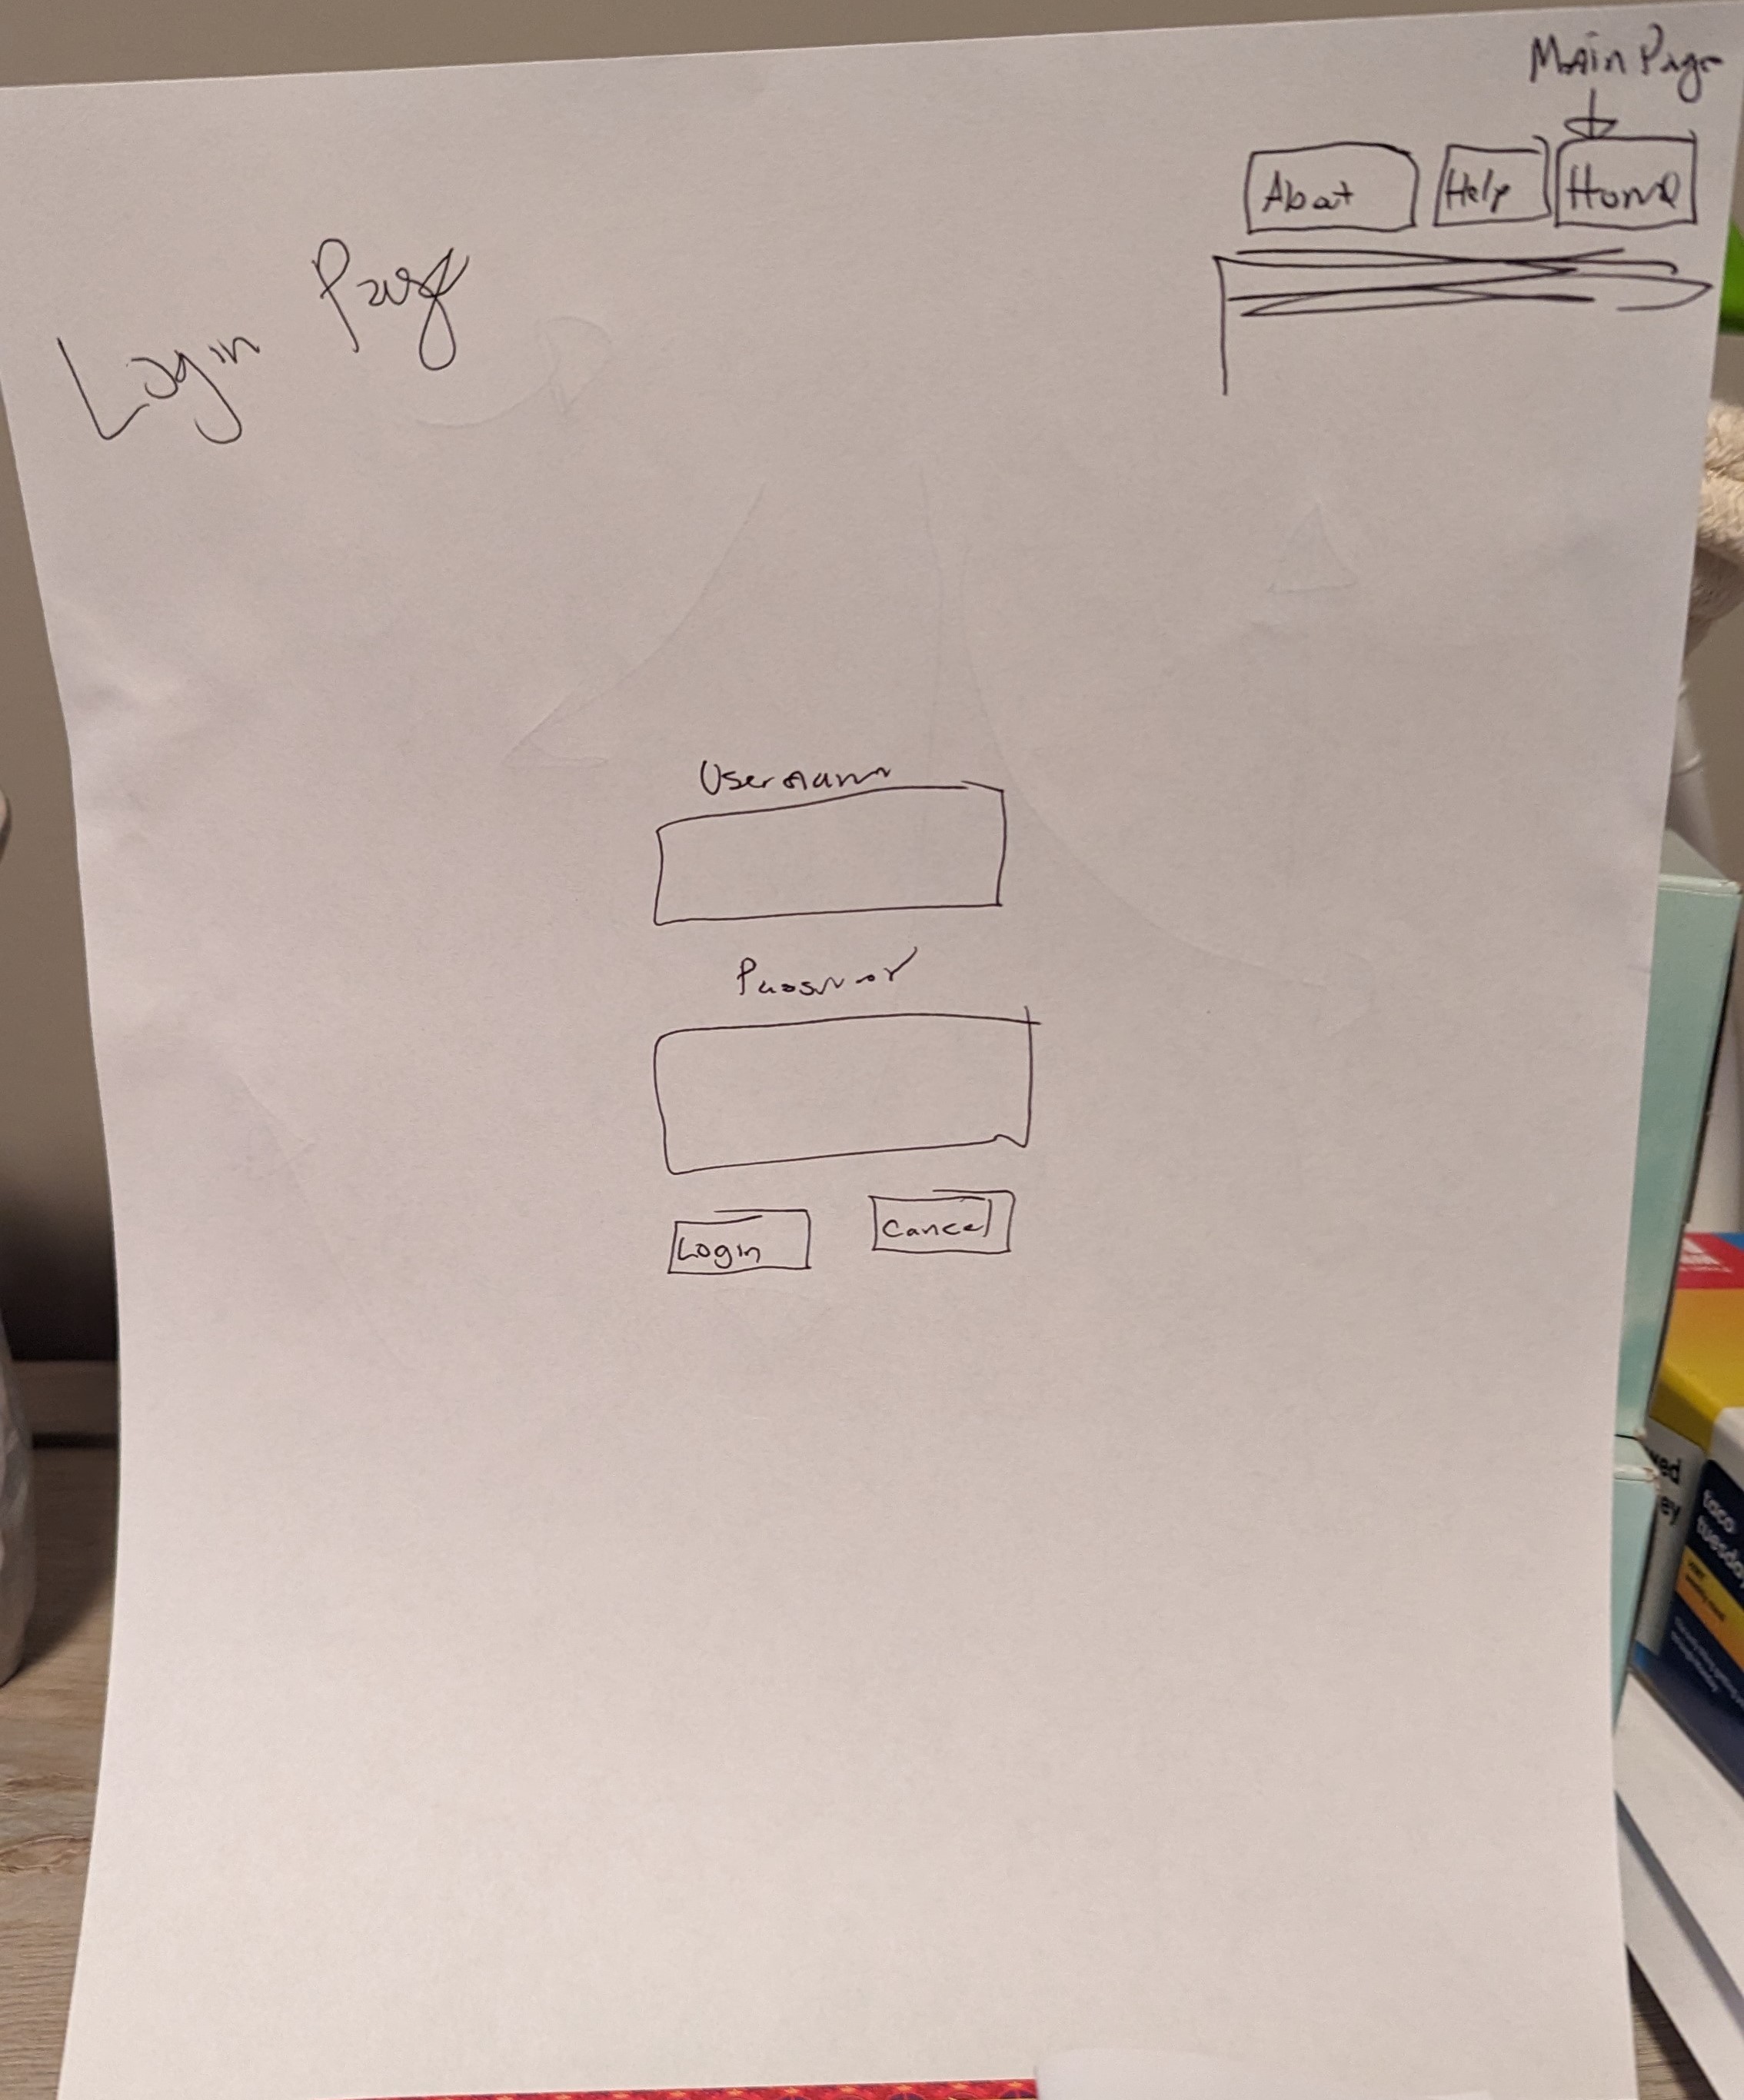 Main Page
About Help Home
Login Page
Username
Password
Login Cancel
taco
tuesday